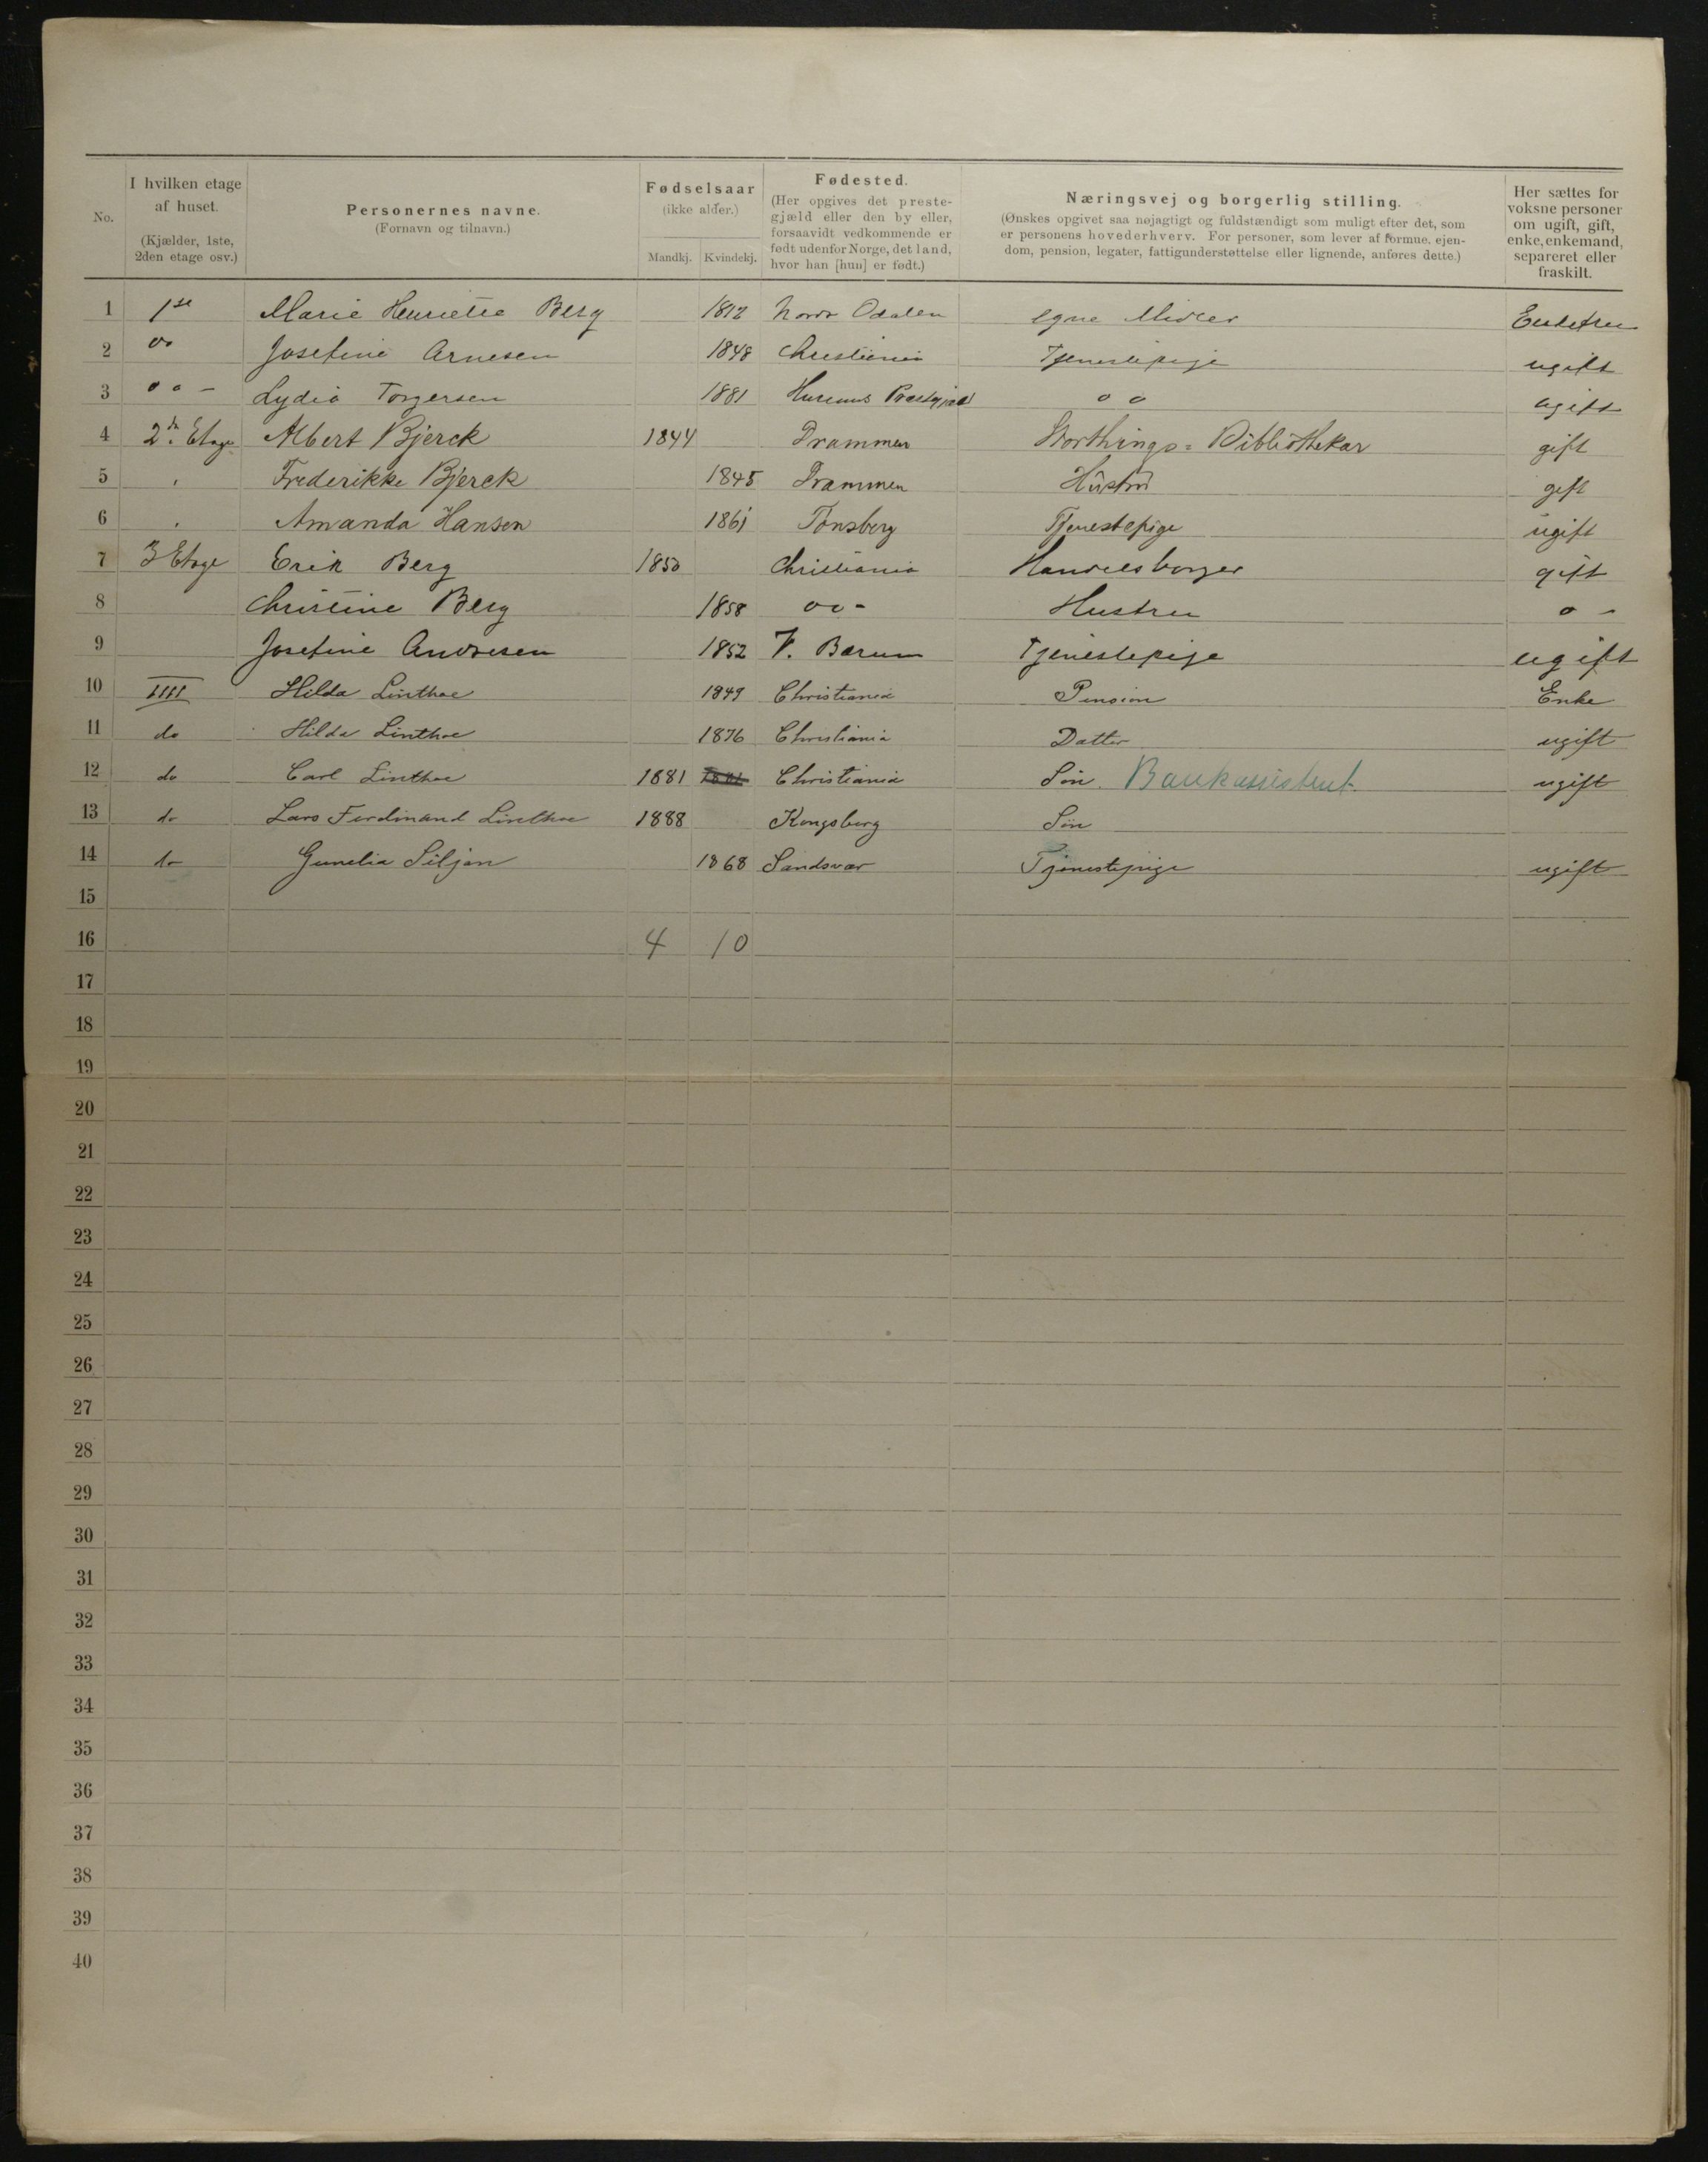 No.
I hvilken etage af huset. (Kjælder, 1ste, 2den etage osv.)
Personernes navne. (Fornavn og tilnavn.)
Fødselsaar (ikke alder.) Mandkj. Kvindekj.
Fødested. (Her opgives det prestegjæld eller den by eller, forsaavidt vedkommende er født udenfor Norge, det land, hvor han [hun] er født.)
Næringsvej og borgerlig stilling. (Ønskes opgivet saa nøjagtigt og fuldstændigt som muligt efter det, som er personens hovederhverv. For personer, som lever af formue, ejendom, pension, legater, fattigunderstøttelse eller lignende, anføres dette.)
Her sættes for voksne personer om ugift, gift, enke, enkemand, separeret eller fraskilt.
1 1ste Marie Henriette Berg 1812 Nord Odalen egne Midler
2 do Josefine Arnesen 1848 Christiania Tjenestepige ugift
3 do - Lydia Torgersen 1881 Hurums Prestgjæld do ugift
4 2den Etage Albert Bjerck 1844 Drammen Storthings-Bibliothekar gift
5 " Frederikke Bjerck 1845 Drammen Hustru gift
6 " Amanda Hansen 1861 Tønsberg Tjenestepige ugift
7 3 Etage Erik Berg 1850 Christiania Handelsborger gift
8 Christine Berg 1858 do - Hustru do -
9 Josefine Andresen 1852 V. Bærum Tjenestepige ugift
10 IIII Hilda Linthoe 1849 Christiania Pension Enke
11 do Hilda Linthoe 1876 Christiania Datter ugift
12 do Carl Linthoe 1881 1881 Christiania Søn. Bankassistent. ugift
13 do Lars Ferdinand Linthoe 1888 Kongsberg Søn
14 do Gunelia Siljan 1868 Sandsvær Tjenestepige ugift
15
16 4 10
17
18
19
20
21
22
23
24
25
26
27
28
29
30
31
32
33
34
35
36
37
38
39
40